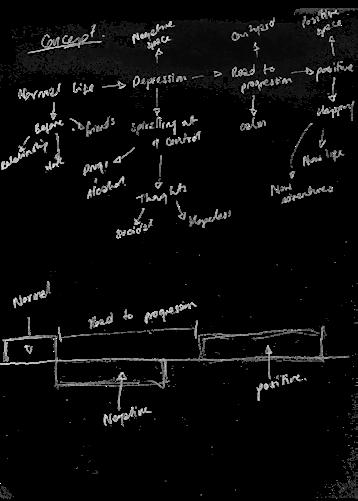 Concept?
Negative
space
Confused
Positive
space
Normal Life
Depression
Road to
progression
positive
Before
friends
Relationship
Spiralling out
of control
calm
Happy
Drugs
Alcohol
New life
New
adventures
Thoughts
suicidal
Hopeless
Normal
Road to progression
Negative
positive